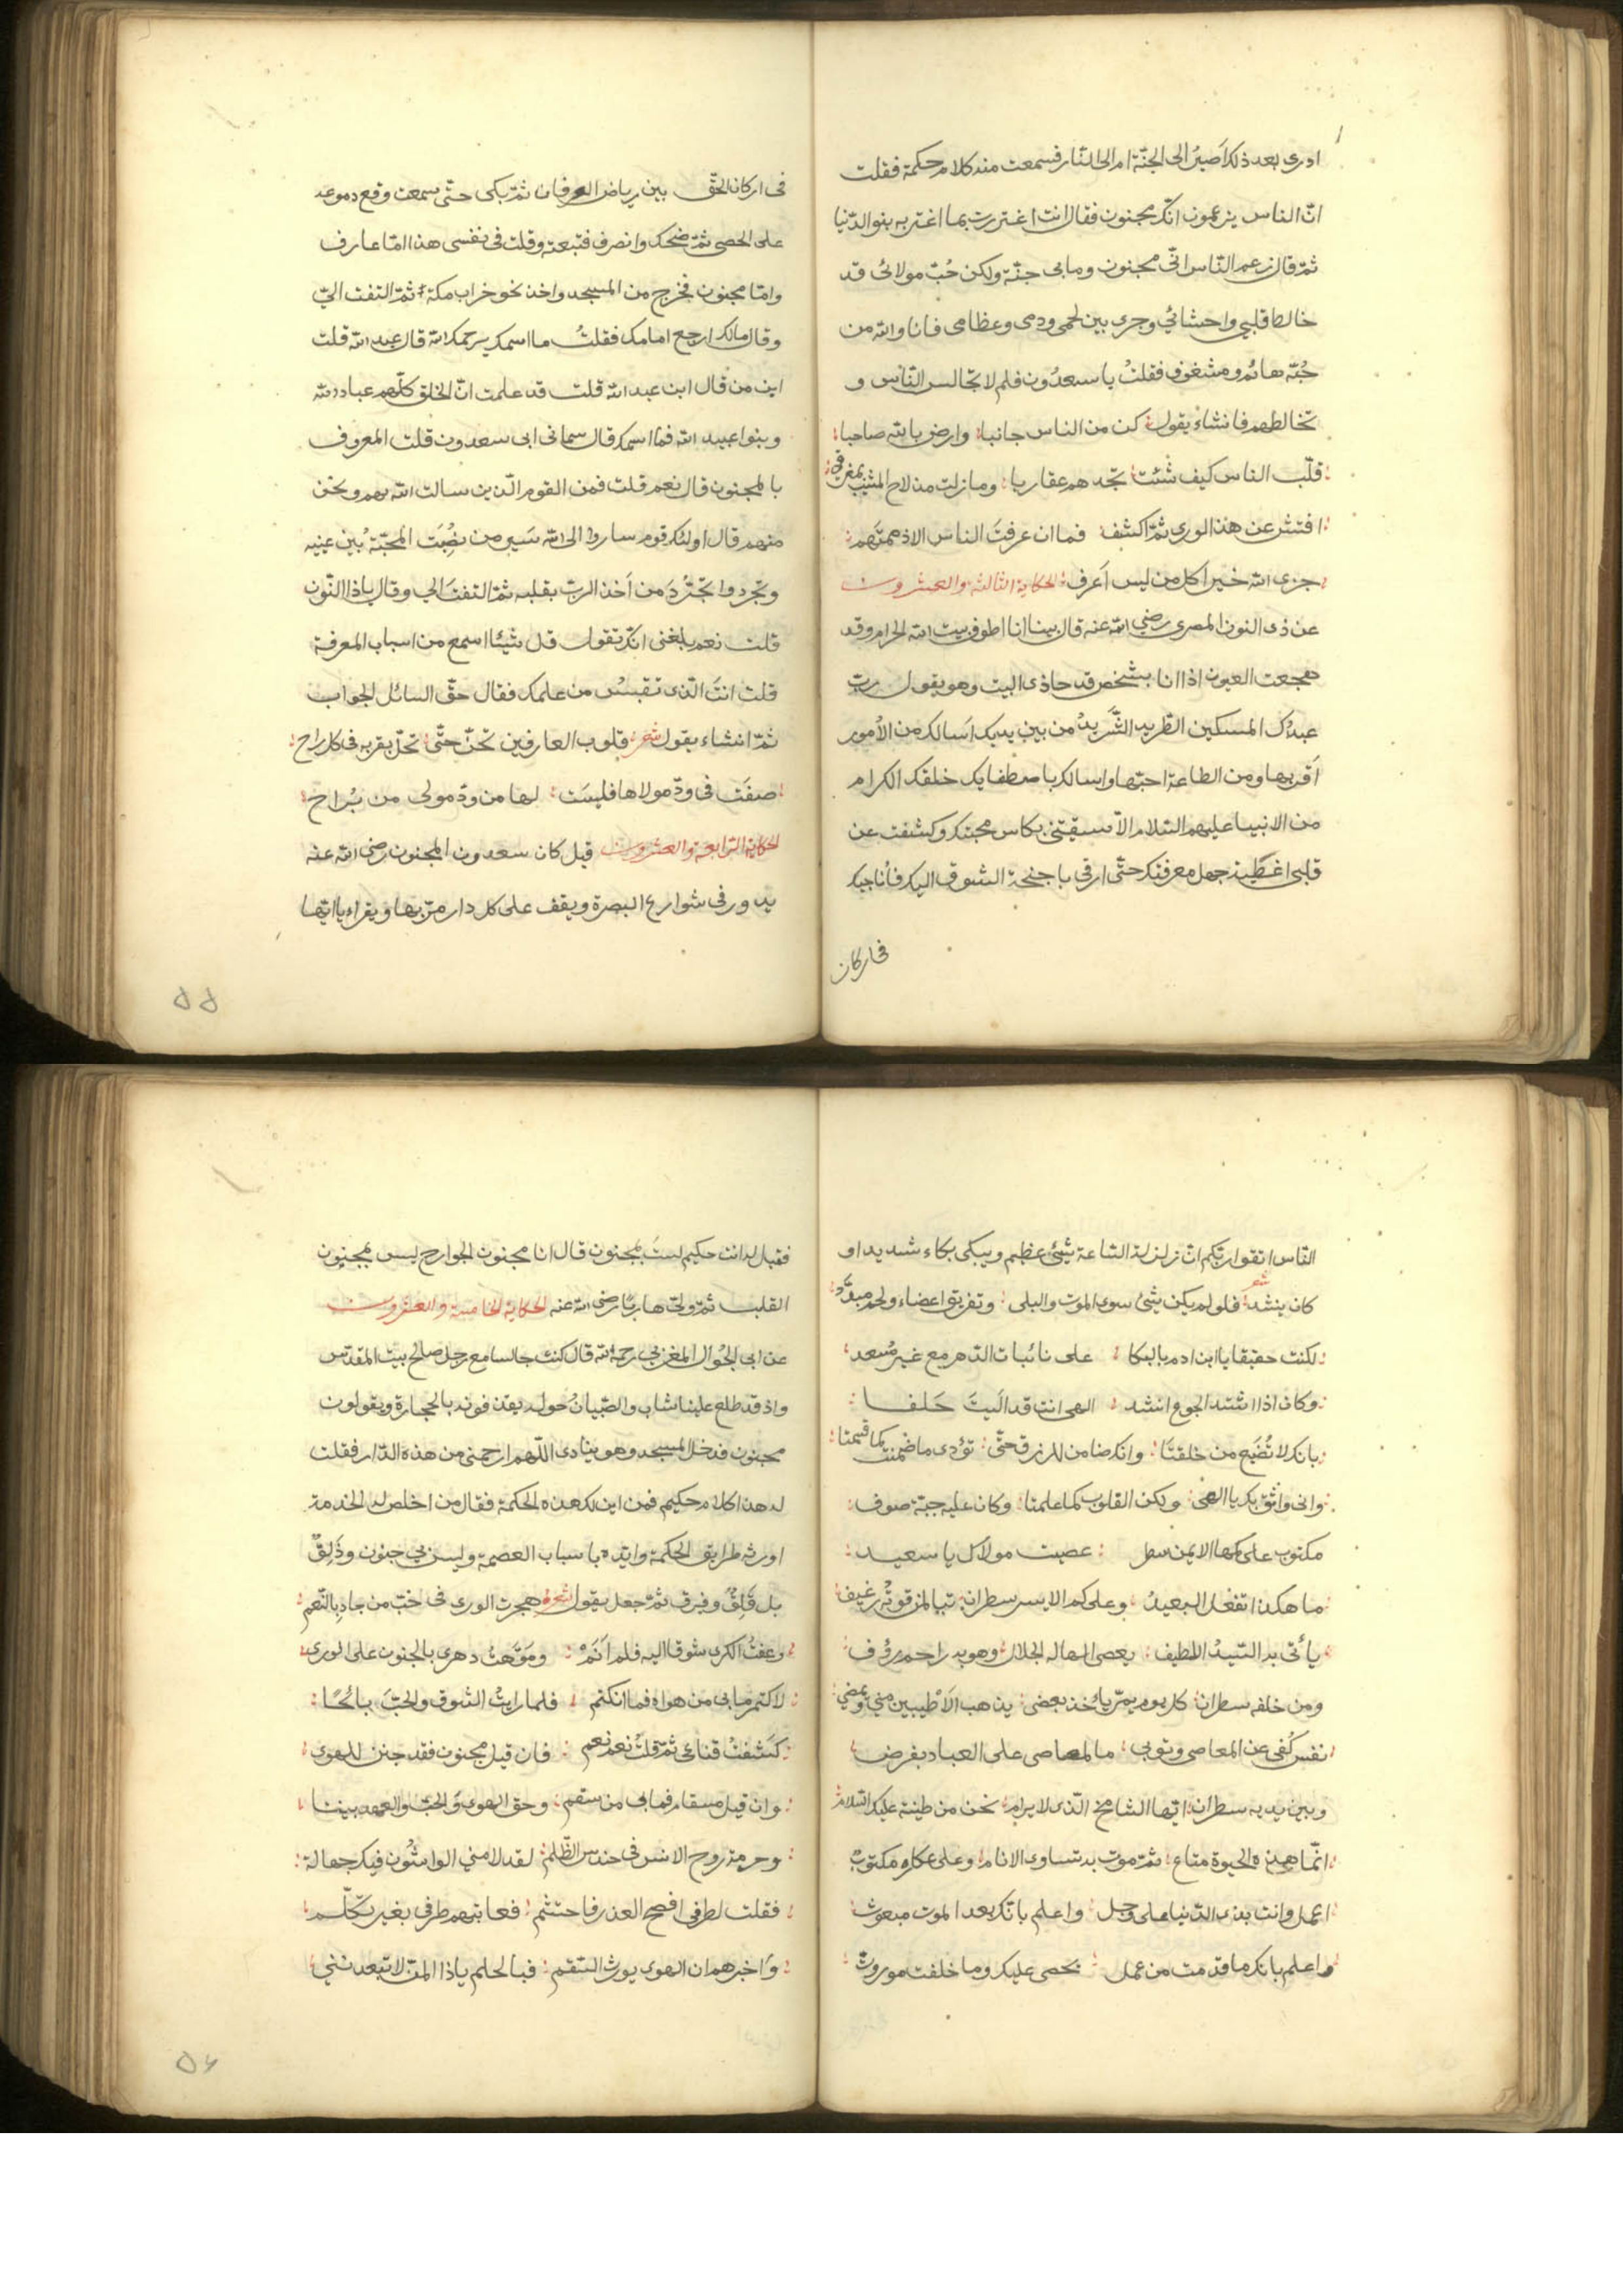 ادرى بعد ذلك اَصيرُ الى الجنّة ام الى النّار فسمعت منه كلام حكمة فقلت
انّ الناس يزعمون انّك مجنون فقال انت اغتررت بما اغتر به بنو الدّنيا
ثمّ قال زعم النّاس انّى مجنون وما بى جنّة ولكن حُبّ مولائى قد
خالط قلبى واحشائى وجرى بين لحمى ودمى وعظامى فانا والله من
حُبّه هائم ومشغوف فقلتُ يا سعدُون فلم لا تجالس النّاس و
تخالطهم فانشاء يقول كن من الناس جانبا وارض بالله صاحبا
قلّب الناس كيف شئت تجدهم عقاربا وما زلت مذ لاح المشيب بمفرقى
افتش عن هذا الورى ثمّ اكشف فما ان عرفتَ الناس الا ذممتَهم
جزى الله خيرا كل من ليس اَعرف الحكاية الثالثة والعشرون
عن ذى النون المصرى رضى الله عنه قال بينا انا اطوف ببيت الله الحرام وقد
هجعت العيون اذا انا بشخص قد حاذى البيت وهو يقول ربّ
عبدُك المسكين الطّريد الشَّريدُ من بين يديك اَسالك من الاُمور
اَقربها ومن الطاعة احبّها واسالك باصطفايك خلقك الكرام
من الانبيا عليهم السّلام الّا سقيتنى بكاس محبّتك وكشفت عن
قلبى اغطية جهل معرفتك حتّى ارقى باجنحة الشوق اليك فاُناجيك
فى اركان
فى اركان الحقّ بين رياض العرفان ثمّ بكى حتّى سمعت وقع دموعه
على الحصى ثمّ ضحك وانصرف فتبعته وقلت فى نفسى هذا امّا عارف
وامّا مجنون فخرج من المسجد واخذ نحو خراب مكة ثمّ التفت الىّ
وقال مالك ارجع امامك فقلتُ ما اسمك يرحمك الله قال عبد الله قلت
ابن من قال ابن عبد الله قلت قد علمت انّ الخلق كلّهم عباد الله
وبنوا عبيد الله فما اسمك قال سمانى ابى سعدون قلت المعروف
بالمجنون قال نعم قلت فمن القوم الّذين سالت الله بهم ونحن
منهم قال اولئك قوم ساروا الى الله سَير من نصُبَت المحبّة بين عينيه
وتجردوا تجرُّدَ من اَخذ الربّ بقلبه ثمّ التفت الي وقال ياذا النّون
قلت نعم بلغنى انّك تقول قل شيئا اسمع من اسباب المعرفة
قلت انتَ الّذى تقبسُ من علمك فقال حقّ السائل الجواب
ثمّ انشاء يقول شعر قلوب العارفين تحنّ حتّى تحلّ بقربه فى كل راح
صفَت فى ودّ مولاها فليسَت لها من ودّ مولى من بُراح
الحكاية الرّابعة والعشرون قيل كان سعدون المجنون رضى الله عنه
يدور فى شوارع البصرة ويقف على كل دار مرّ بها ويقراء يا ايّها
۵۵
النّاس اتقوا ربّكم انّ زلزلة السّاعة شيئ عظيم ويبكى بكاء شديدا و
كان ينشد شعر فلو لم يكن شيئ سوى الموت والبلى وتفريق اعضاء ولحم مبدَّد
لكنت حقيقا يا ابن ادم بالبكا على نائبات الدّهر مع غير مُسعد
وكان اذا اشتد الجوع انشد الهى انت قد اَليتَ حَلفا
بانك لا تُضيع من خلقتَا وانك ضامن للرزق حتّى تؤدى ما ضمنت كما قسمتا
وانى واثق بك يا الهى ولكن القلوب كما علمتا وكان عليه جبّة صوف
مكتوب على كمها الايمن سطر عصيت مولاك يا سعيد
ما هكذا تفعل العبيدُ وعلى كم الايسر سطران تبا لمن قوتُه رغيف
ياتى به السّيدُ اللطيف يعصى الهاله الجلال وهو به راحم رؤف
ومن خلفه سطران كل يوم يمرّ يأخذ بعضى يذهب الاَطيبين منى ويمضى
نفس كُفى عن المعاصى وتوبى ما المعاصى على العباد بفرض
وبين يديه سطران ايّها الشامخ الّذى لا يرام نحن من طينة عليك السّلام
انّما هذه الحيوة متاع ثمّ موت به تساوى الانام وعلى عكازه مكتوبٌ
اعمل وانت بذى الدّنيا على وجل واعلم بانّك بعد الموت مبعوث
واعلم بانك ما قدمت من عمل يحصى عليك وما خلفت موروث
فقيل له انت حكيم لستَ بمجنون قال انا مجنون الجوارح ليس بمجنون
القلب ثمّ ولّى هاربًا رضى الله عنه الحكاية الخامسة والعشرون
عن ابى الجُوال المغربى رحمه الله قال كنت جالسا مع رجل صالح ببيت المقدّس
واذ قد طلع علينا شاب والصّبيانُ حوله يقذفونه بالحجارة ويقولون
مجنون فدخل المسجد وهو ينادى اللّهم ارحمنى من هذه الدّار فقلت
له هذا كلام حكيم فمن اين لك هذه الحكمة فقال من اخلص له الخدمة
اورثه طرايق الحكمة وايّده باسباب العصمة وليس بى جنون وذَلِقٌ
بل قَلِقٌ وفرق ثمّ جعل يقول شعره هجرت الورى فى حبّ من جاد بالنّعم
وعفتُ الكرى شوقا اليه فلم اَنَمْ وموّهتُ دهرى بالجنون على الورى
لاكتم ما بى من هواه فما انكتم فلما رايتُ الشّوق والحبَّ بائحًا
كشفتُ قناعى ثمّ قلتُ نعم نعم فان قيل مجنون فقد جنن الهوى
وان قيل مسقام فما بى من سقم وحق الهوى والحبّ والعهد بيننا
وحرمة روح الانس فى حندس الظّلم لقد لامني الواشُون فيك جهالة
فقلت لطرفى افصح العذر فاحتشم فعاتبهم طرفى بغير تكلّم
واخبرهم ان الهوى يورث السّقم فبالحلم ياذا المنّ لا تبعدننّي
۵۶